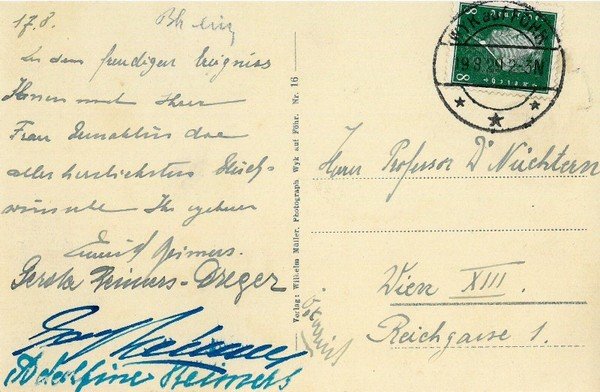 17.8.
Zu dem freudigen Ereigniss
Ihnen und Ihrer
Frau Gemahlin die
allerherzlichsten Glück-
wünsche Ihr ergebener
Emmerich Reimers.
Gerda Reimers-Dreger
Adolfine Reimers
Verlag: Wilhelm Müller, Photograph Wyk auf Föhr. Nr. 16
WYK auf FÖHR
8 8
Herrn Professor Dr Nüchtern
Wien XIII.
Reichgasse 1.